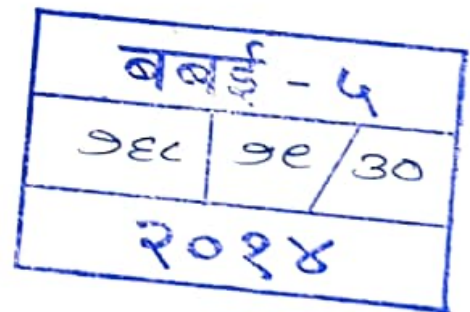 बबई - ५
१६८ १९/३०
२०१४